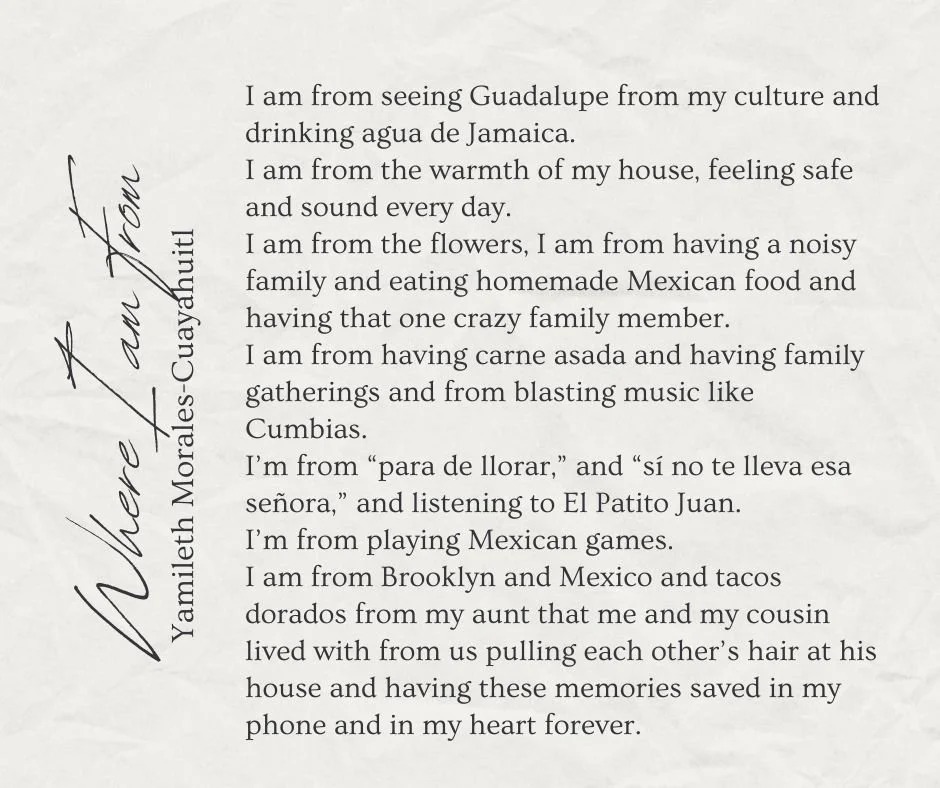 Where I am from
Yamileth Morales-Cuayahuitl
I am from seeing Guadalupe from my culture and
drinking agua de Jamaica.
I am from the warmth of my house, feeling safe
and sound every day.
I am from the flowers, I am from having a noisy
family and eating homemade Mexican food and
having that one crazy family member.
I am from having carne asada and having family
gatherings and from blasting music like
Cumbias.
I’m from “para de llorar,” and “sí no te lleva esa
señora,” and listening to El Patito Juan.
I’m from playing Mexican games.
I am from Brooklyn and Mexico and tacos
dorados from my aunt that me and my cousin
lived with from us pulling each other’s hair at his
house and having these memories saved in my
phone and in my heart forever.